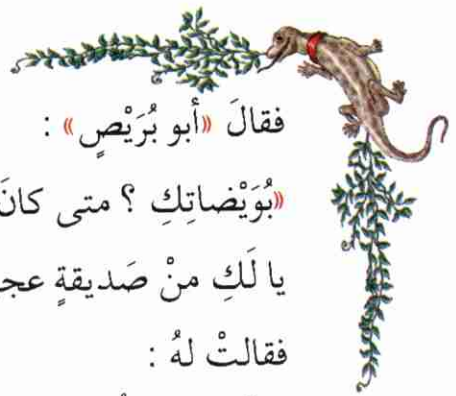 فقالَ «أبو بُرَيْصٍ» :
«بُوَيْضاتِكِ ؟ متى كانَ
يا لَكِ منْ صَديقةٍ
فقالتْ لهُ :